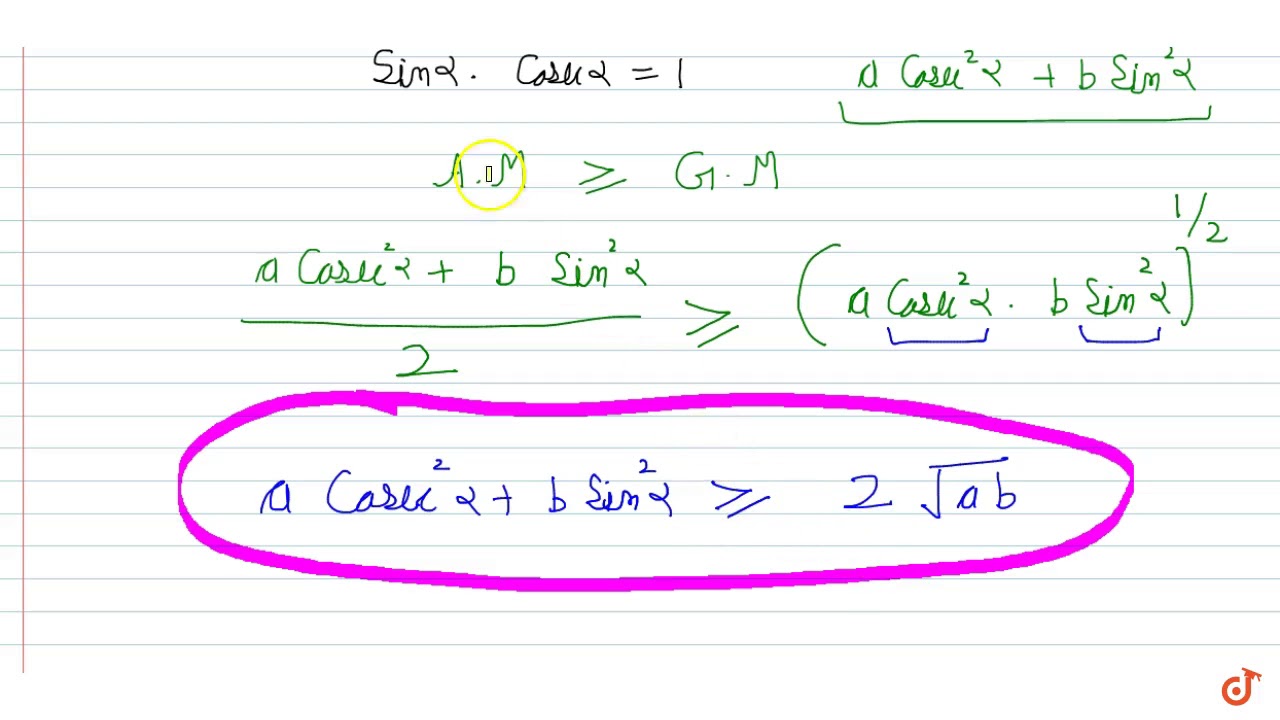 Sinα. Cosecα = 1 a Cosec²α + b Sin²α
A.M ≥ G.M
(a Cosec²α + b Sin²α)/2 ≥ (a Cosec²α . b Sin²α)^1/2
a Cosec²α + b Sin²α ≥ 2 √ab